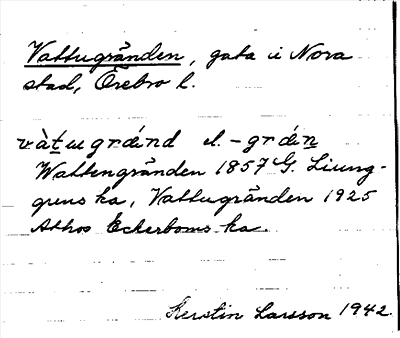 Vattugränden, gata i Nora
stad, Örebro l.
vàt̲ɯgrǽnd el. -grǽn̲
Wattengränden 1857 G. Ljung-
grens ka, Vattugränden 1925
Athos Eckerboms ka.
Kerstin Larsson 1942.